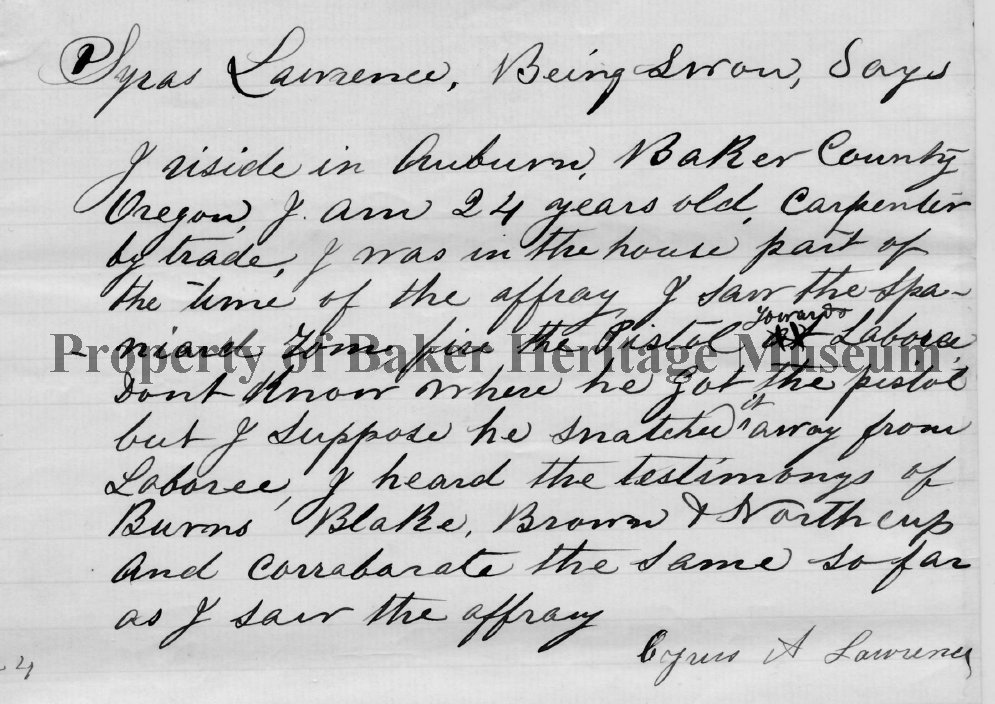 Syras Lawrence, Being Swon, Says
I riside in Auburn, Baker County
Oregon, I am 24 years old, Carpenter
by trade, I was in the house part of
the time of the affray I saw the Spa-
niard Tome fire the Pistol towards Laboree,
Property of Baker Heritage Museum
Dont Know where he got the pistol
but I suppose he snatched it away from
Laboree, I heard the testimony of
Burns Blake, Brown & Northcup
And Corraborate the same so far
as I saw the affray
Cyrus A Lawrence